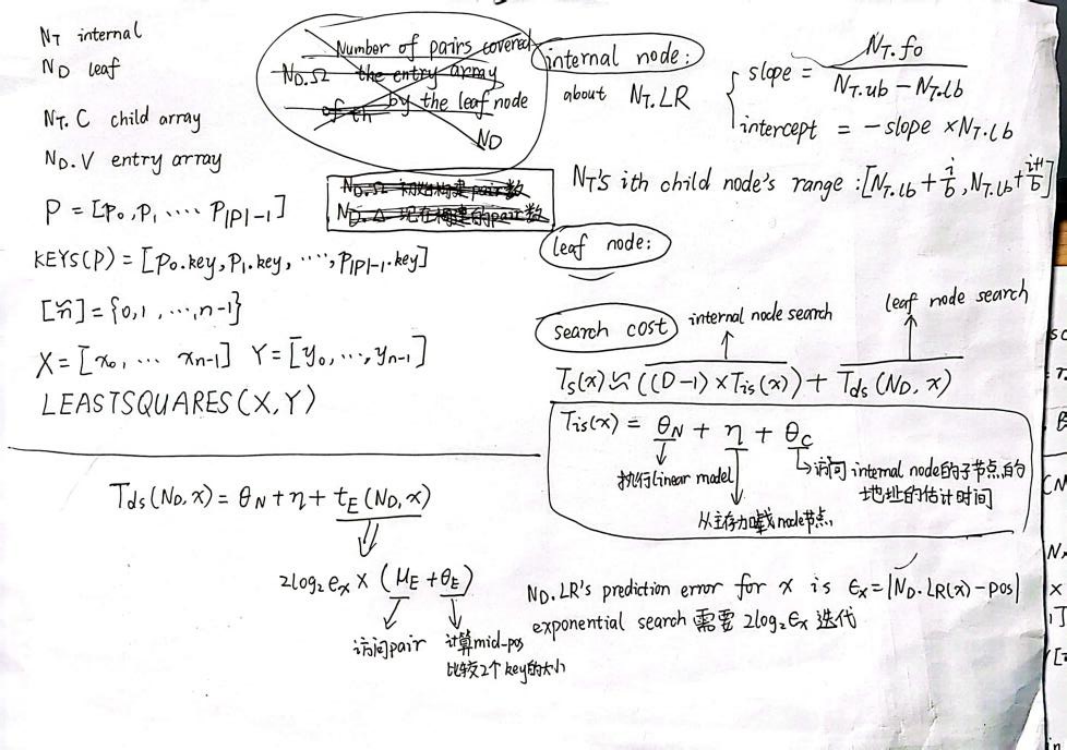 N_T internal
N_D leaf
N_T.C child array
N_D.V entry array
P = [p_0, p_1 ····· p_|P|-1]
KEYS(P) = [p_0.key, p_1.key, ····, p_|P|-1.key]
[n] = {0,1,···,n-1}
X = [x_0, ··· x_n-1] Y = [y_0, ···, y_n-1]
LEASTSQUARES(X,Y)
Number of pairs covered
N_D.Ω the entry array
by the leaf node
N_D
N_D.Ω 初始构建pair数
N_D.Δ 现在构建的pair数
internal node:
about N_T.LR
slope = N_T.fo / (N_T.ub - N_T.lb)
intercept = -slope × N_T.lb
N_T's ith child node's range: [N_T.lb + i/b, N_T.lb + i+1/b]
leaf node:
search cost
internal node search
leaf node search
T_s(x) ≈ ((D-1) × T_is(x)) + T_ds(N_D, x)
T_is(x) = θ_N + η + θ_C
执行linear model
访问internal node的子节点的
地址的估计时间
从主存加载node节点
T_ds(N_D, x) = θ_N + η + t_E(N_D, x)
2log_2 e_x × (μ_E + θ_E)
访问pair
计算mid_pos
比较2个key的大小
N_D.LR's prediction error for x is ϵ_x = |N_D.LR(x) - pos|
exponential search 需要 2log_2 ϵ_x 迭代